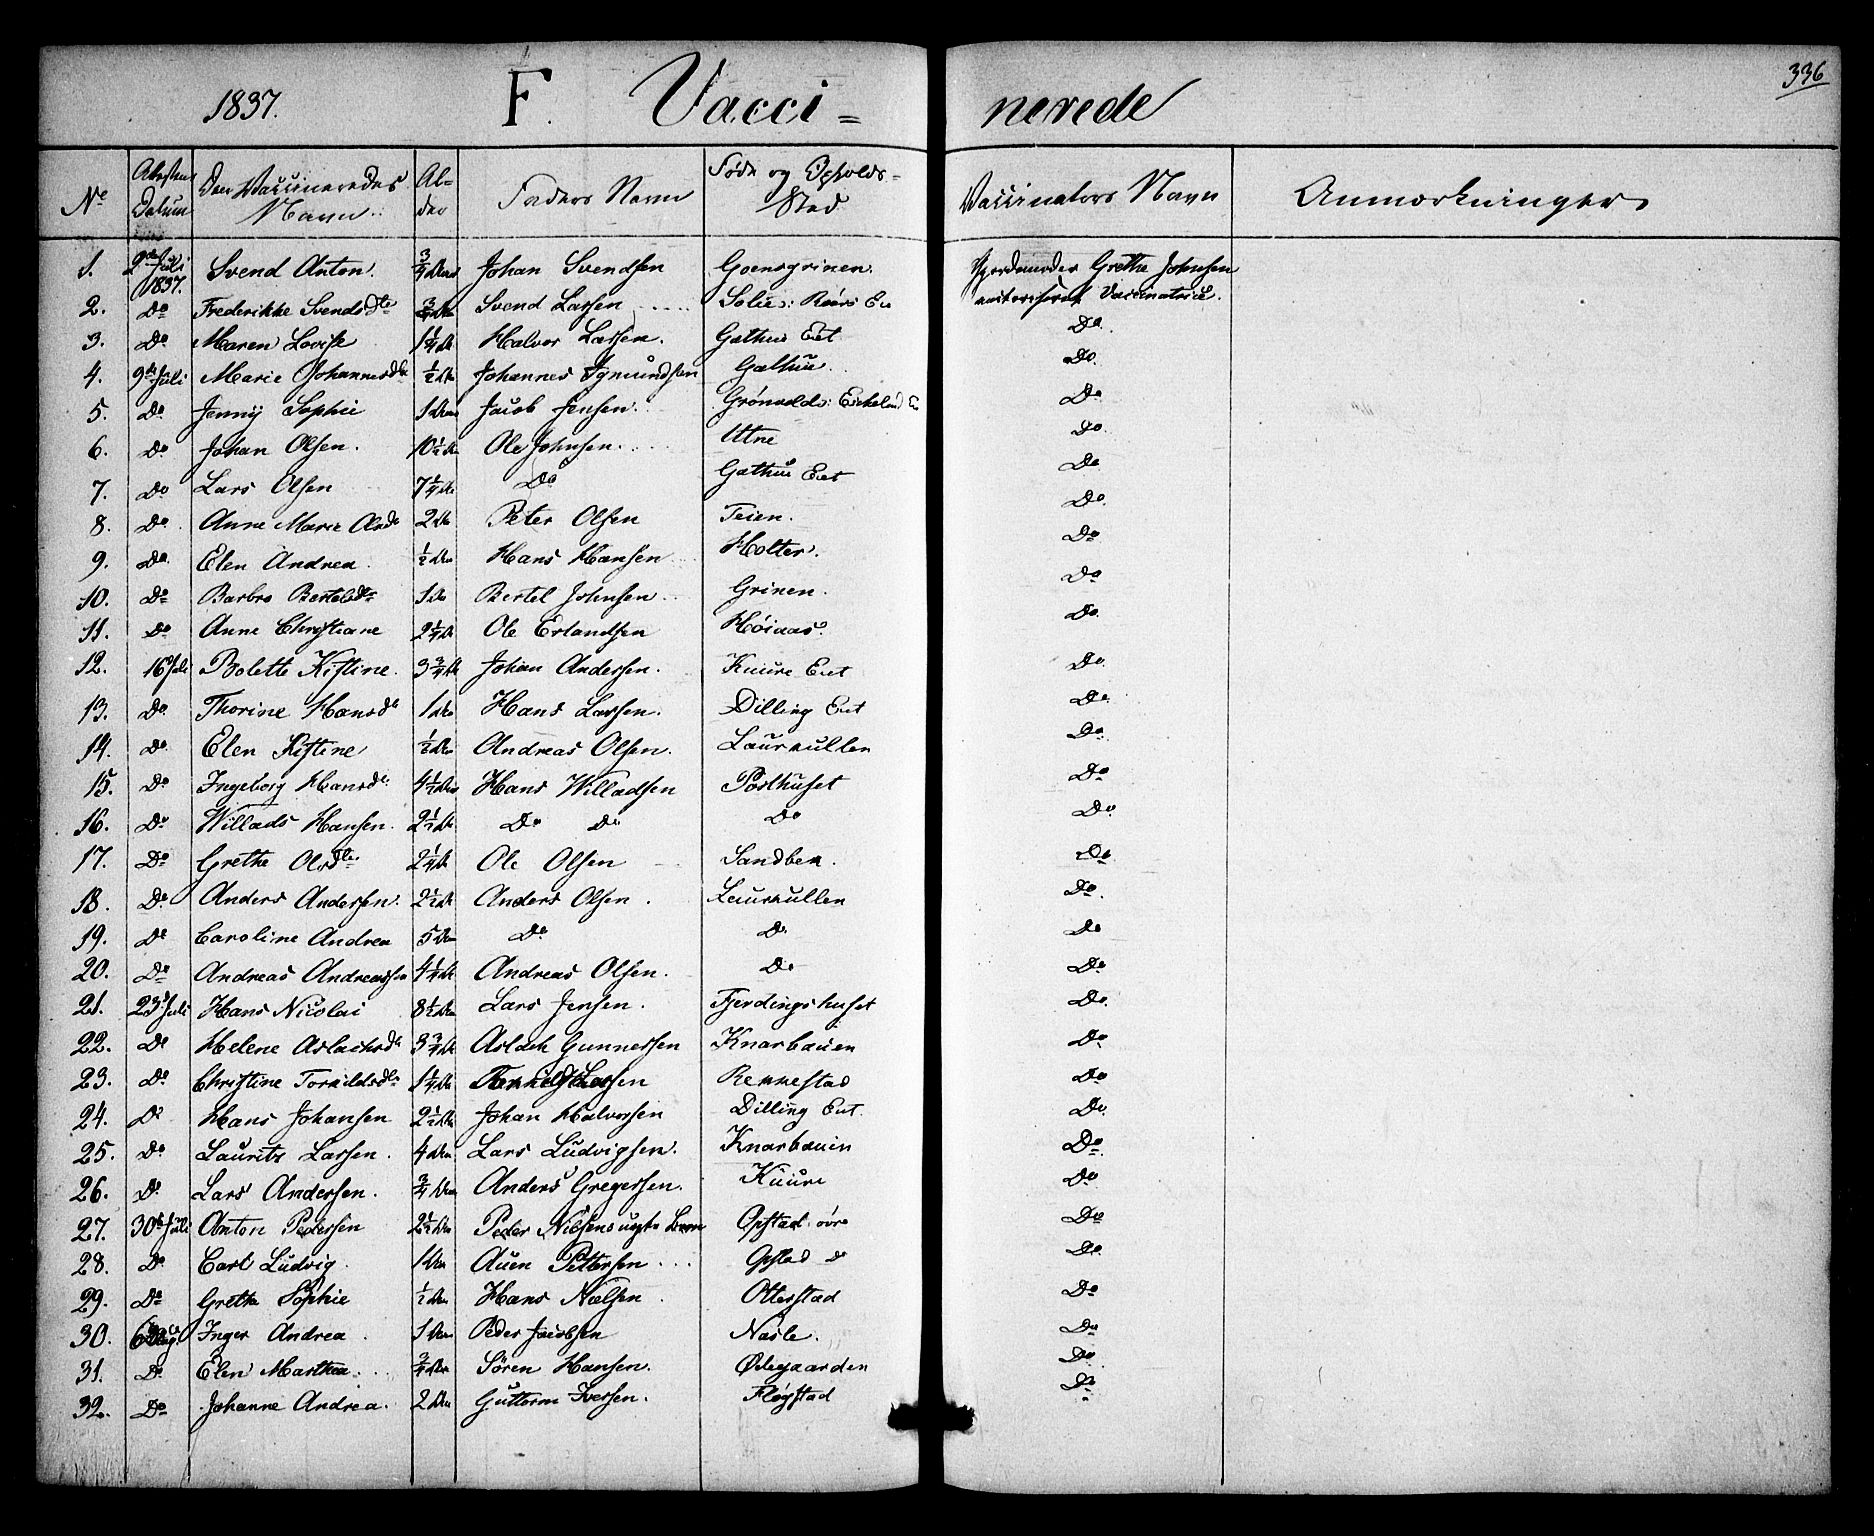 336
1837. F. Vacci= nerede
No Attestens Datum Den Vaccineredes Navn. Al- der Faders Navn Føde og Opholds= Sted Vaccinators Navn Anmærkninger
1. 2den Juli 1837. Svend Anton. 3/4 Johan Svendsen Goensgrinen. Jordemoder Grethe Johnsen
autoriseret Vaccinatrice.
2. Do Frederikke Svendsdtr 3/4 Svend Larsen Eie
3. Do Maren Lovise 1 1/4 Halvor Larsen. Gathus Eiet Do.
4. 9de Juli Marie Johannesdtr 1/2 Johannes Gathuu Do.
5. Do Jenny Sophie 1 Jacob Jensen. Do
6. Do. Johan Olsen. 10 1/2 Ole Johnsen. Utne Do.
7. Do Lars Olsen 7 1/4 Do Gathuu Eiet Do
8. Do. Anne Marie Olsdtr 2 Peter Olsen Teien. Do.
9. Do. Elen Andrea 1/2 Hans Hansen Holter. Do
10. Do Barbro Bertelsdtr 1 Bertel Johnsen Grinen. Do
11. Do Anne Christiane 2 1/4 Ole Erlandsen Høiaas. Do.
12. 16de Juli Bolette Kistine. 3 3/4 Johan Andersen. Kuure Eiet Do.
13. Do. Thorine Hansdtr 1 Hans Larsen. Dilling Eiet Do.
14. Do. Elen Kistine 1/2 Andreas Olsen. Laurkullen Do.
15. Do Ingeborg Hansdtr 4 1/2 Hans Willadsen Posthuset Do
16. Do Willads Hansen. 2 1/2 Do Do Do Do
17. Do Grethe Olsdtr. 2 1/4 Ole Olsen Sandbek. Do
18. Do. Anders Andersen. 2 1/2 Anders Olsen. Laurkullen Do.
19. Do Caroline Andrea 5 Do Do Do
20. Do Andreas Andreassen 4 1/4 Andreas Olsen. Do Do
21. 23de Juli Hans Nicolai 8 1/2 Lars Jensen. Fjerdingshuset Do.
22. Do Helene Aslachsdtr 3 3/4 Aslach Gunnersen Knarbauen Do
23. Do Christine Torkildsdtr 1 1/4 Rekkestad Do
24. Do Hans Johansen 2 1/2 Johan Halvorsen Dilling Eiet. Do.
25. Do. Lauritz Larsen. 4 Lars Ludvigsen. Knarbauin Do.
26. Do Lars Andersen. 3/4 Anders Gregersen. Kuure Do
27. 30te Juli Anton Pedersen 2 1/2 Peder Nilsens uægte Barn Opstad øvre Do
28. Do Carl Ludvig. 1 Auen Pettersen Opstad do Do.
29. Do Grethe Sophie 1/2 Hans Nielsen. Otterstad Do
30. 6te Aug. Inger Andrea 1 Peder Jacobsen Nasle. Do
31. Do Elen Marthea. 3/4 Sören Hansen. Ødegaarden Do
32. Do Johanne Andrea. 2 Guttorm Iversen. Fløgstad Do